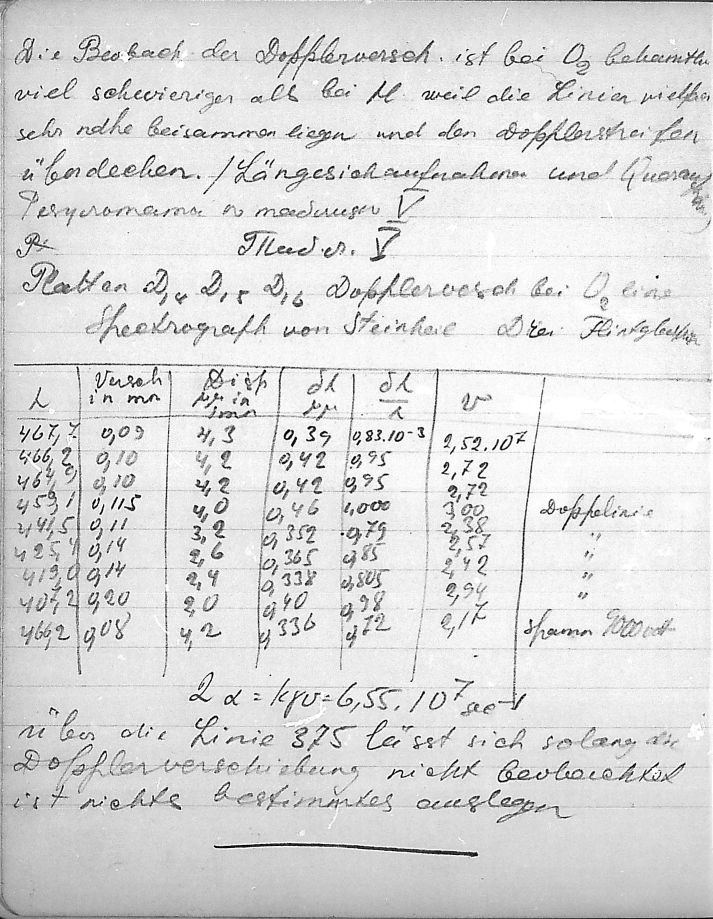 Die Beobach der Dopplerversch. ist bei O₂ bekanntli
viel schwieriger als bei H. weil die Linien vielfach
sehr nahe beisammen liegen und den Dopplerstreifen
überdecken. /Längssichaufnahmen und Querauf
V
Pt V
Platten D₁₄ D₁₅ D₁₆ Dopplerversch bei O₂ eine
Spectrograph von Steinheil Drei
λ | Versch in mm | Disp μμ in 1mm | δλ μμ | δλ/λ | v
467,7 | 0,09 | 4,3 | 0,39 | 0,83.10⁻³ | 2,52.10⁷
466,2 | 0,10 | 4,2 | 0,42 | 0,95 | 2,72
464,9 | 0,10 | 4,2 | 0,42 | 0,95 | 2,72
459,1 | 0,115 | 4,0 | 0,46 | 1,000 | 3,00 | Doppelinie
441,5 | 0,11 | 3,2 | 0,352 | 0,79 | 2,38 | "
425,4 | 0,14 | 2,6 | 0,365 | 0,85 | 2,57 | "
419,0 | 0,14 | 2,4 | 0,338 | 0,805 | 2,42 | "
407,2 | 0,20 | 2,0 | 0,40 | 0,98 | 2,94 | "
466,2 | 0,08 | 4,2 | 0,336 | 0,72 | 2,17 | Spann 9000 volt
2 α = = 6,55.10⁷ sec⁻¹
über die Linie 375 lässt sich solang die
Dopplerverschiebung nicht beobachtet
ist nichts bestimmtes auslegen